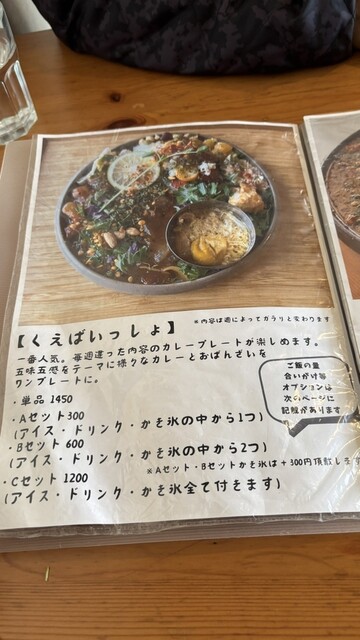 ※内容は週によってガラリと変わります
【くえばいっしょ】
一番人気。毎週違った内容のカレープレートが楽しめます。
五味五感をテーマに様々なカレーとおばんざいを
ワンプレートに。
・単品 1450
・Aセット300
(アイス・ドリンク・かき氷の中から1つ)
・Bセット 600
(アイス・ドリンク・かき氷の中から2つ)
※Aセット・Bセットかき氷は+300円頂戴します
・Cセット 1200
(アイス・ドリンク・かき氷全て付きます)
ご飯の量
合いがけ等
オプションは
次のページに
記載があります